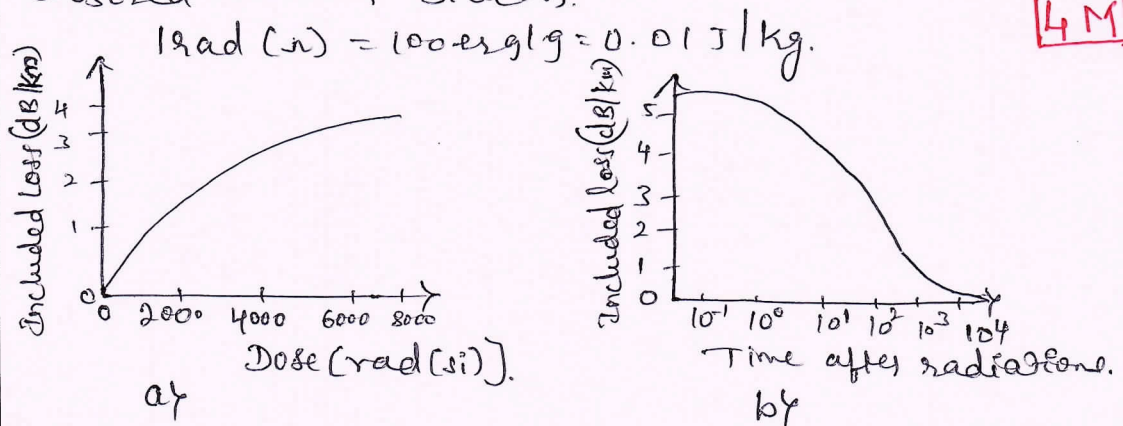 1rad (si) = 100 erg/g = 0.01 J/kg.
4 M
Included Loss (dB/Km)
4
3
2
1
0
0 2000 4000 6000 8000
Dose (rad (si)].
a)
Included loss (dB/Km)
5
4
3
2
1
0
10⁻¹ 10⁰ 10¹ 10² 10³ 10⁴
Time after radiations.
b)